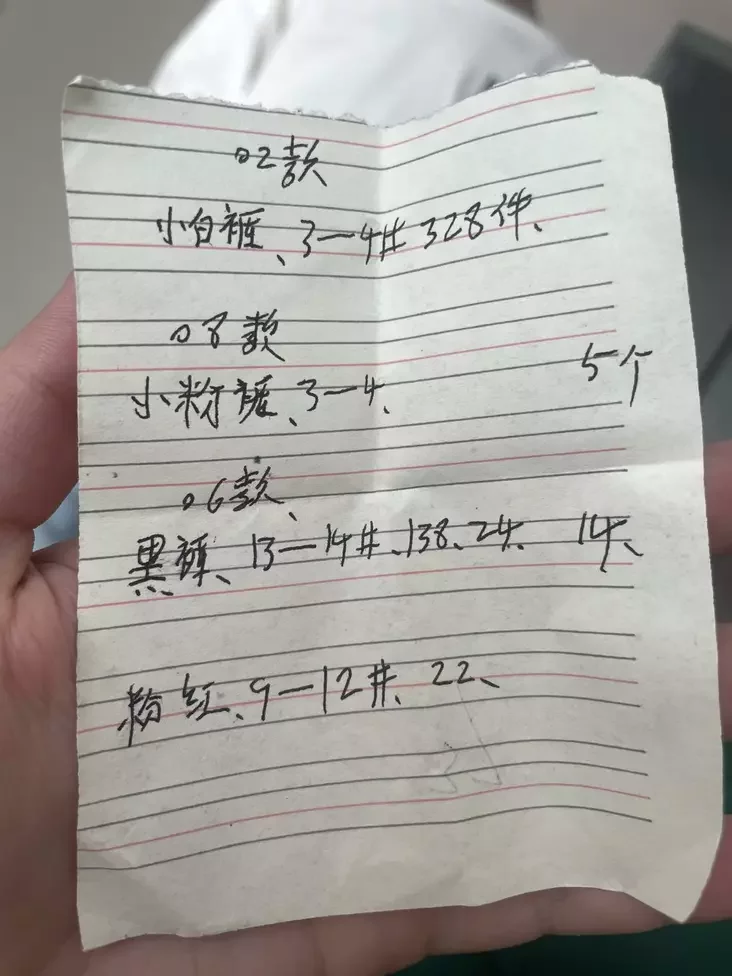 02款
小白裤、3—4# 328件、
08款
小粉裤、3—4、 5个
06款、
黑裤、13—14#、138、24、 14、
粉红、9—12#、22、